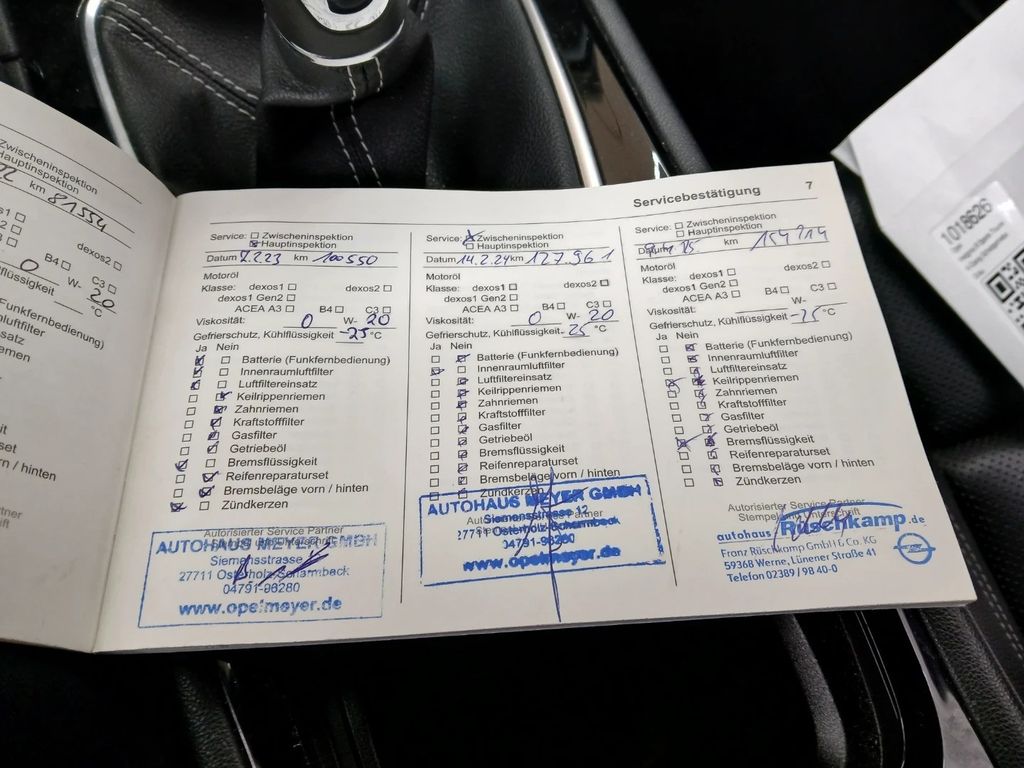 Zwischeninspektion
Hauptinspektion
22 km 81554
dexos2
B4 C3
0 W- 20
°C
(Funkfernbedienung)
Servicebestätigung 7
Service: Zwischeninspektion
Hauptinspektion
km 100550
Motoröl
Klasse: dexos1 dexos2
dexos1 Gen2
ACEA A3 B4 C3
Viskosität: 0 W- 20
Gefrierschutz, Kühlflüssigkeit -25 °C
Ja Nein
Batterie (Funkfernbedienung)
Innenraumluftfilter
Luftfiltereinsatz
Keilrippenriemen
Zahnriemen
Kraftstofffilter
Gasfilter
Getriebeöl
Bremsflüssigkeit
Reifenreparaturset
Bremsbeläge vorn / hinten
Zündkerzen
Autorisierter Service Partner
AUTOHAUS MEYER GMBH
Siemensstrasse
27711 Osterholz-Scharmbeck
04791-96280
www.opelmeyer.de
Service: Zwischeninspektion
Hauptinspektion
Datum 14.2.24 km 127.961
Motoröl
Klasse: dexos1 dexos2
dexos1 Gen2
ACEA A3 B4 C3
Viskosität: 0 W- 20
Gefrierschutz, Kühlflüssigkeit -25 °C
Ja Nein
Batterie (Funkfernbedienung)
Innenraumluftfilter
Luftfiltereinsatz
Keilrippenriemen
Zahnriemen
Kraftstofffilter
Gasfilter
Getriebeöl
Bremsflüssigkeit
Reifenreparaturset
Bremsbeläge vorn / hinten
Zündkerzen
AUTOHAUS MEYER GMBH
Siemensstrasse 12
27711 Osterholz-Scharmbeck
04791-96280
www.opelmeyer.de
Service: Zwischeninspektion
Hauptinspektion
Datum km
Motoröl
Klasse: dexos1 dexos2
dexos1 Gen2
ACEA A3 B4 C3
Viskosität: W-
Gefrierschutz, Kühlflüssigkeit °C
Ja Nein
Batterie (Funkfernbedienung)
Innenraumluftfilter
Luftfiltereinsatz
Keilrippenriemen
Zahnriemen
Kraftstofffilter
Gasfilter
Getriebeöl
Bremsflüssigkeit
Reifenreparaturset
Bremsbeläge vorn / hinten
Zündkerzen
Autorisierter Service Partner
autohaus Rüschkamp.de
Franz Rüschkamp GmbH & Co. KG
59368 Werne, Lünener Straße 41
Telefon 02389 / 98 40-0
1018626